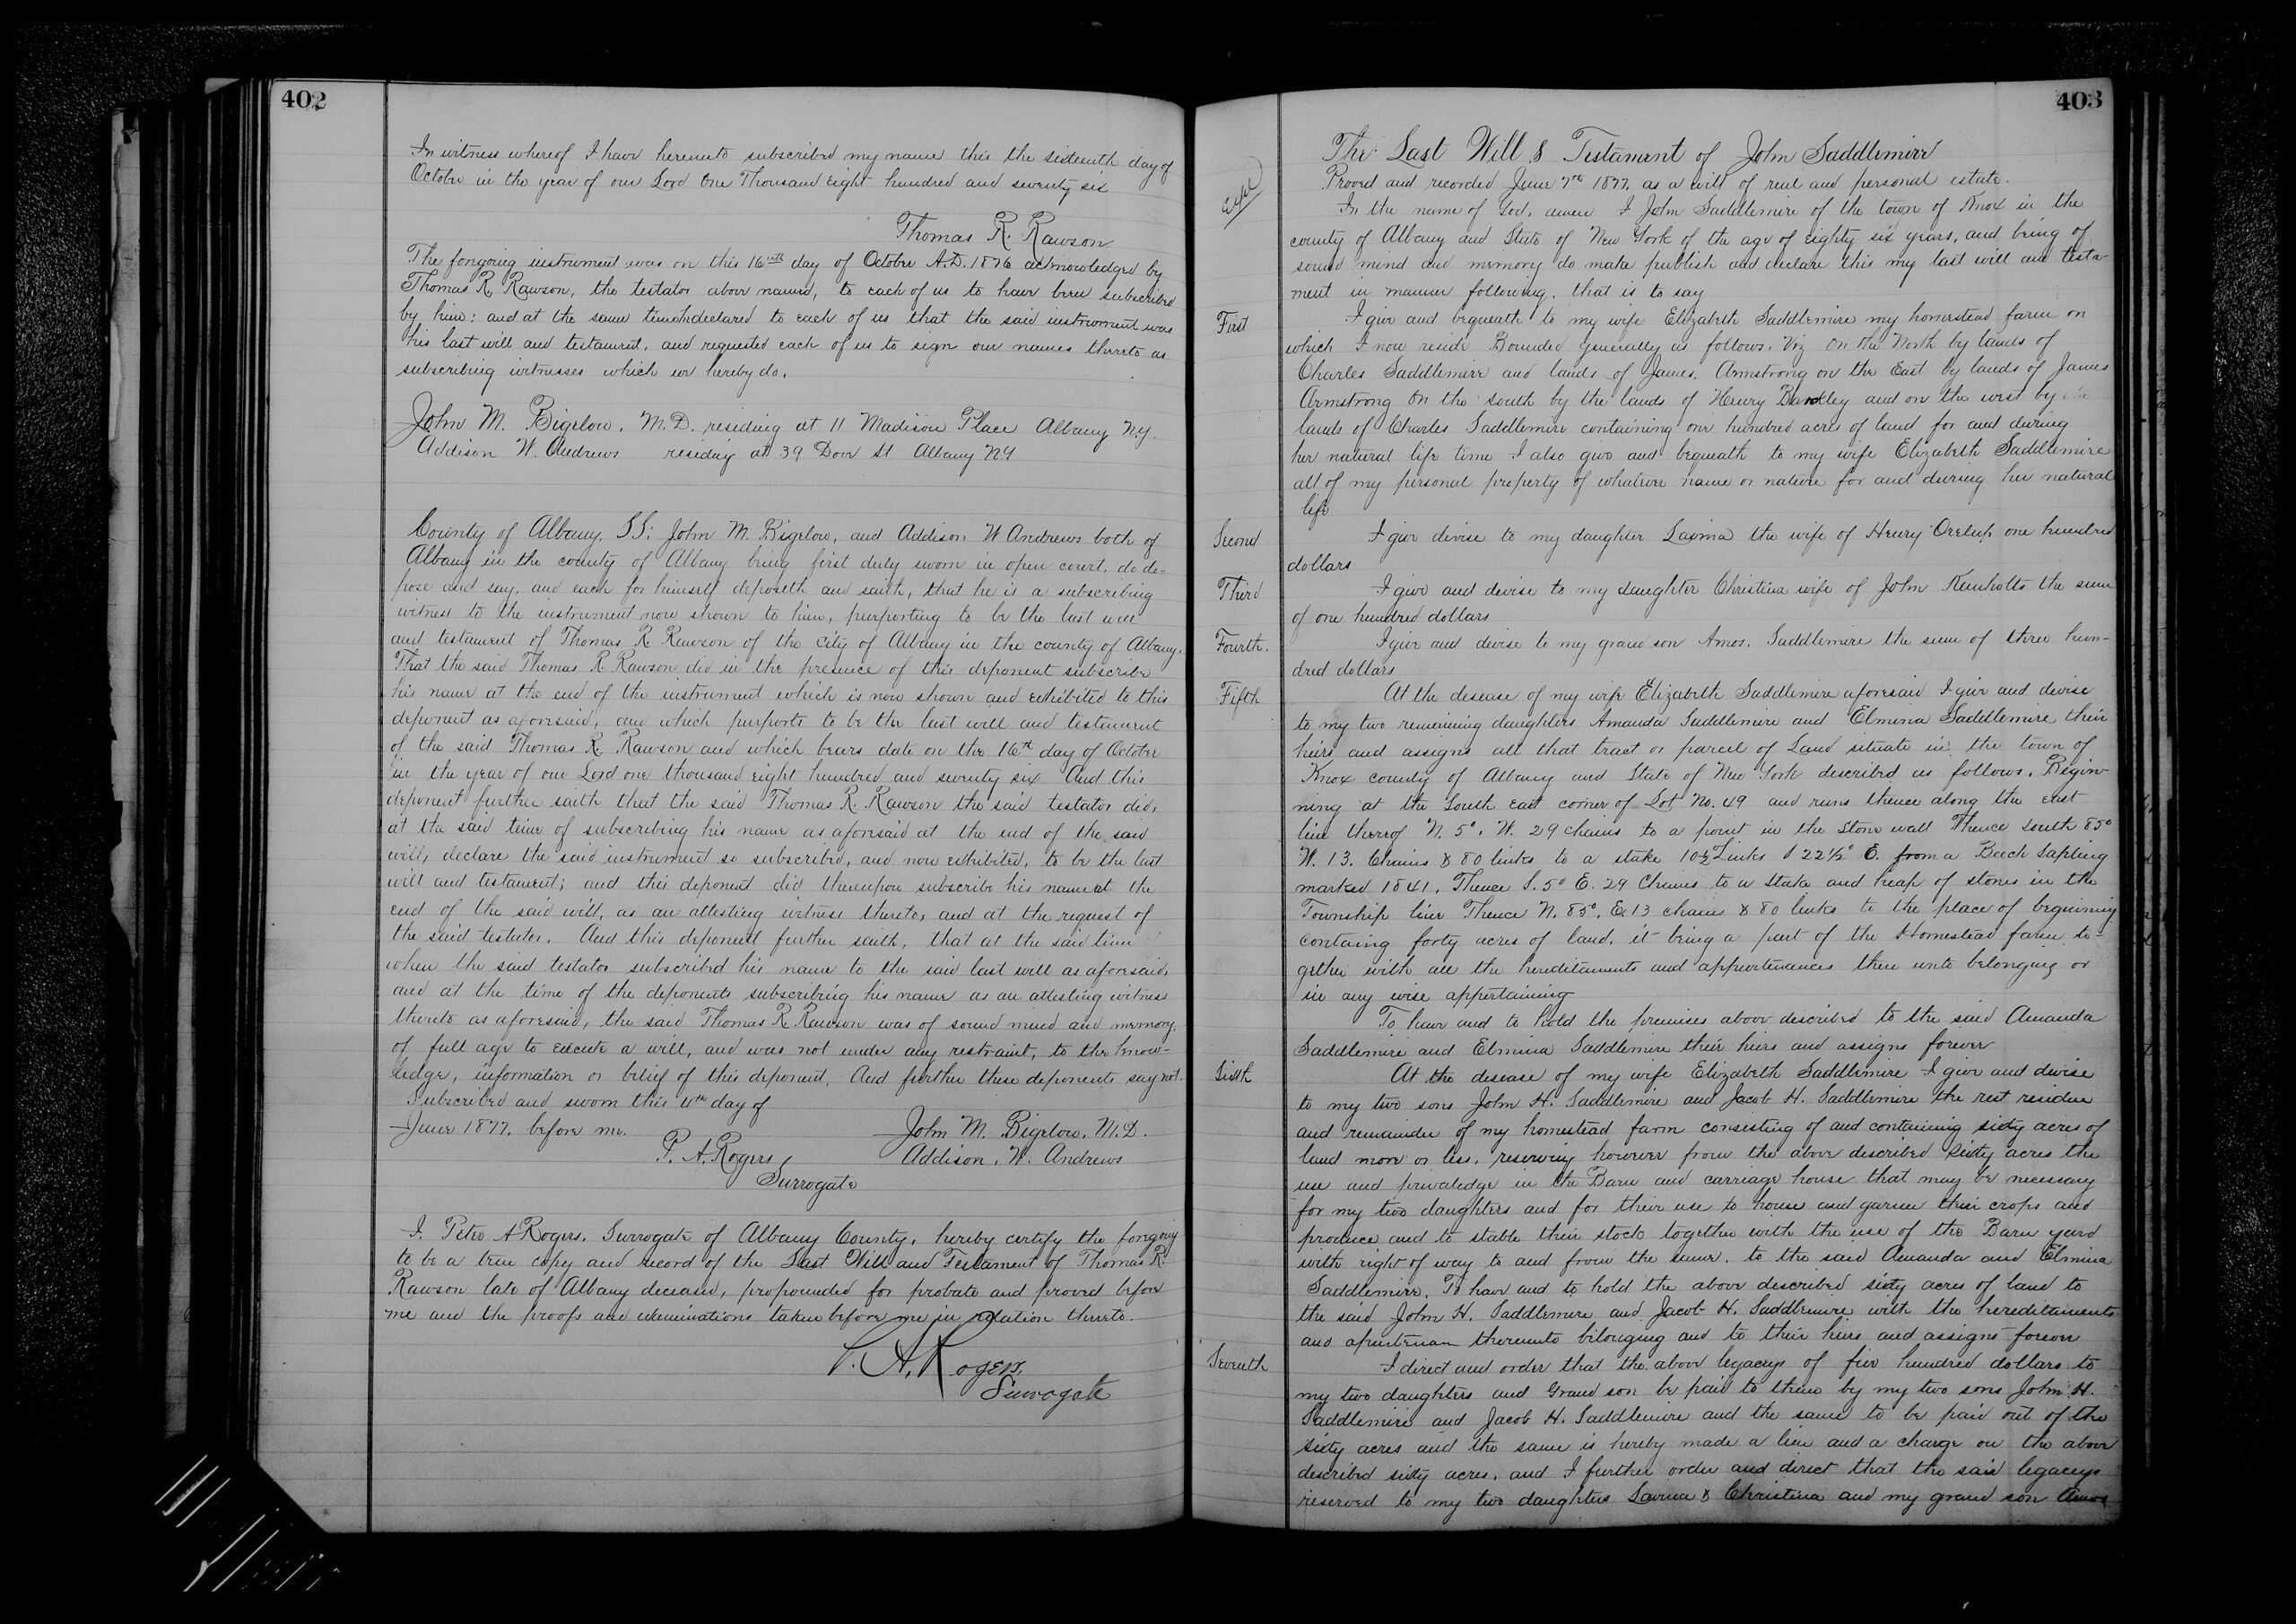 402
In witness whereof I have hereunto subscribed my name this the sixteenth day of
October in the year of our Lord One Thousand Eight hundred and seventy six
Thomas R. Rawson
The foregoing instrument was on this 16th day of October A.D. 1876 acknowledged by
Thomas R. Rawson, the testator above named, to each of us to have been subscribed
by him: and at the same time declared to each of us that the said instrument was
his last will and testament, and requested each of us to sign our names thereto as
subscribing witnesses which we hereby do.
John M. Bigelow, M.D. residing at 11 Madison Place Albany N.Y.
Addison W. Andrews residing at 39 Dove St Albany NY
County of Albany, SS: John M. Bigelow, and Addison W Andrews both of
Albany in the county of Albany being first duly sworn in open court, do de-
pose and say, and each for himself deposeth and saith, that he is a subscribing
witness to the instrument now shown to him, purporting to be the last will
and testament of Thomas R Rawson of the city of Albany in the county of Albany,
That the said Thomas R Rawson did in the presence of this deponent subscribe
his name at the end of the instrument which is now shown and exhibited to this
deponent as aforesaid, and which purports to be the last will and testament
of the said Thomas R. Rawson and which bears date on the 16th day of October
in the year of our Lord one thousand eight hundred and seventy six And this
deponent further saith that the said Thomas R. Rawson the said testator did,
at the said time of subscribing his name as aforesaid at the end of the said
will, declare the said instrument so subscribed, and now exhibited, to be the last
will and testament; and this deponent did thereupon subscribe his name at the
end of the said will, as an attesting witness thereto, and at the request of
the said testator. And this deponent further saith, that at the said time
when the said testator subscribed his name to the said last will as aforesaid,
and at the time of the deponents subscribing his name as an attesting witness
thereto as aforesaid, the said Thomas R Rawson was of sound mind and memory,
of full age to execute a will, and was not under any restraint, to the know-
ledge, information or belief of this deponent. And further these deponents say not.
Subscribed and sworn this 4th day of
June 1877, before me. John M. Bigelow, M.D.
P. A. Rogers Addison. W. Andrews
Surrogate
I, Peter A Rogers, Surrogate of Albany County, hereby certify the foregoing
to be a true copy and record of the Last Will and Testament of Thomas R.
Rawson late of Albany deceased, propounded for probate and proved before
me and the proofs and examinations taken before me in relation thereto.
P. A. Rogers,
Surrogate
403
The Last Will & Testament of John Saddlemire
Proved and recorded June 7th 1877, as a will of real and personal estate.
In the name of God, amen I John Saddlemire of the town of Knox in the
county of Albany and State of New York of the age of eighty six years, and being of
sound mind and memory do make publish and declare this my last will and testa-
ment in manner following. that is to say
First I give and bequeath to my wife Elizabeth Saddlemire my homestead farm on
which I now reside Bounded generally as follows. Viz On the North by lands of
Charles Saddlemire and lands of James. Armstrong on the East by lands of James
Armstrong on the south by the lands of Henry Barckley and on the west by the
lands of Charles Saddlemire containing one hundred acres of land for and during
her natural life time I also give and bequeath to my wife Elizabeth Saddlemire
all of my personal property of whatever name or nature for and during her natural
life
Second I give devise to my daughter Lavina the wife of Henry Orelup one hundred
dollars
Third I give and devise to my daughter Christina wife of John Keenholts the sum
of one hundred dollars
Fourth. I give and devise to my grand son Amos. Saddlemire the sum of three hun-
dred dollars
Fifth At the desease of my wife Elizabeth Saddlemire aforesaid I give and devise
to my two remaining daughters Amanda Saddlemire and Elmina Saddlemire their
heirs and assigns all that tract or parcel of Land situate in the town of
Knox county of Albany and State of New York described as follows, Begin-
ning at the South East corner of Lot No. 49 and runs thence along the east
line thereof N. 5°, W. 29 chains to a point in the Stone wall Thence South 85°
W. 13. Chains & 80 links to a stake 10½ Links S 22½° E. from a Beech Sapling
marked 1841, Thence S. 5° E. 29 Chains to a Stake and heap of stones in the
Township line Thence N. 85°, E. 13 chains & 80 links to the place of beginning
containg forty acres of land, it being a part of the Homestead farm to-
gether with all the hereditaments and appurtenances there unto belonging or
in any wise appertaining
To have and to hold the premises above described to the said Amanda
Saddlemire and Elmina Saddlemire their heirs and assigns forever
Sixth At the desease of my wife Elizabeth Saddlemire I give and devise
to my two sons John H. Saddlemire and Jacob H. Saddlemire the rest residue
and remainder of my homestead farm consisting of and containing sixty acres of
land more or less, reserving however from the above described sixty acres the
use and privaledge in the Barn and carriage house that may be necessary
for my two daughters and for their use to house and garner their crops and
produce and to stable their stock together with the use of the Barn yard
with right of way to and from the same. to the said Amanda and Elmina
Saddlemire. To have and to hold the above described sixty acres of land to
the said John H. Saddlemire and Jacob H. Saddlemire with the hereditaments
and thereunto belonging and to their heirs and assigns forever
Seventh I direct and order that the above legacys of five hundred dollars to
my two daughters and Grand son be paid to them by my two sons John H.
Saddlemire and Jacob H. Saddlemire and the same to be paid out of the
sixty acres and the same is hereby made a lien and a charge on the above
described sixty acres, and I further order and direct that the said legacys
reserved to my two daughters Lavina & Christina and my grand son Amos